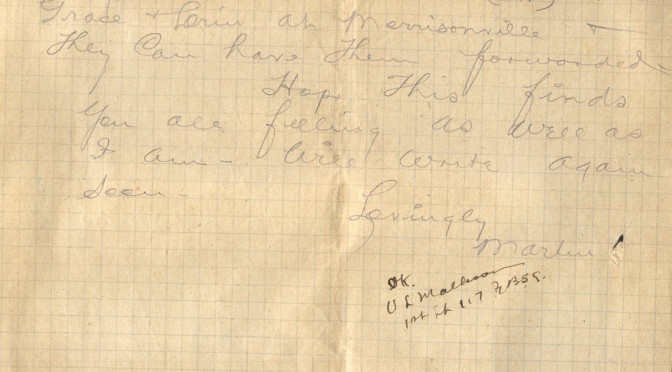 Grace + Lorin at Morrisonville +
They Can have Them forwarded -
Hope This finds
You all feeling as well as
I am - Will write again
soon -
Lovingly
Martin
OK.
1st Lt 117